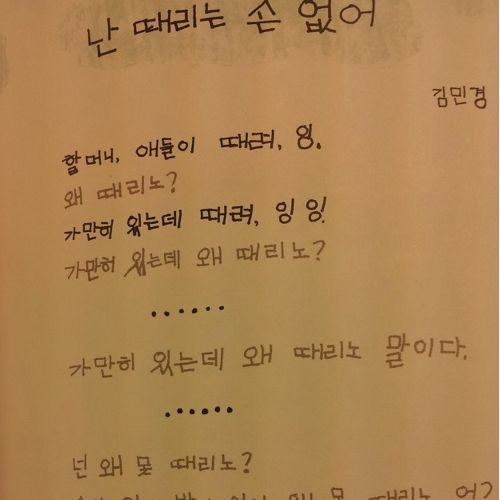 난 때리는 손 없어
김민경
할머니, 애들이 때려, 잉.
왜 때리노?
가만히 있는데 때려, 잉 잉.
가만히 있는데 왜 때리노?
......
가만히 있는데 왜 때리노 말이다.
......
넌 왜 못 때리노?